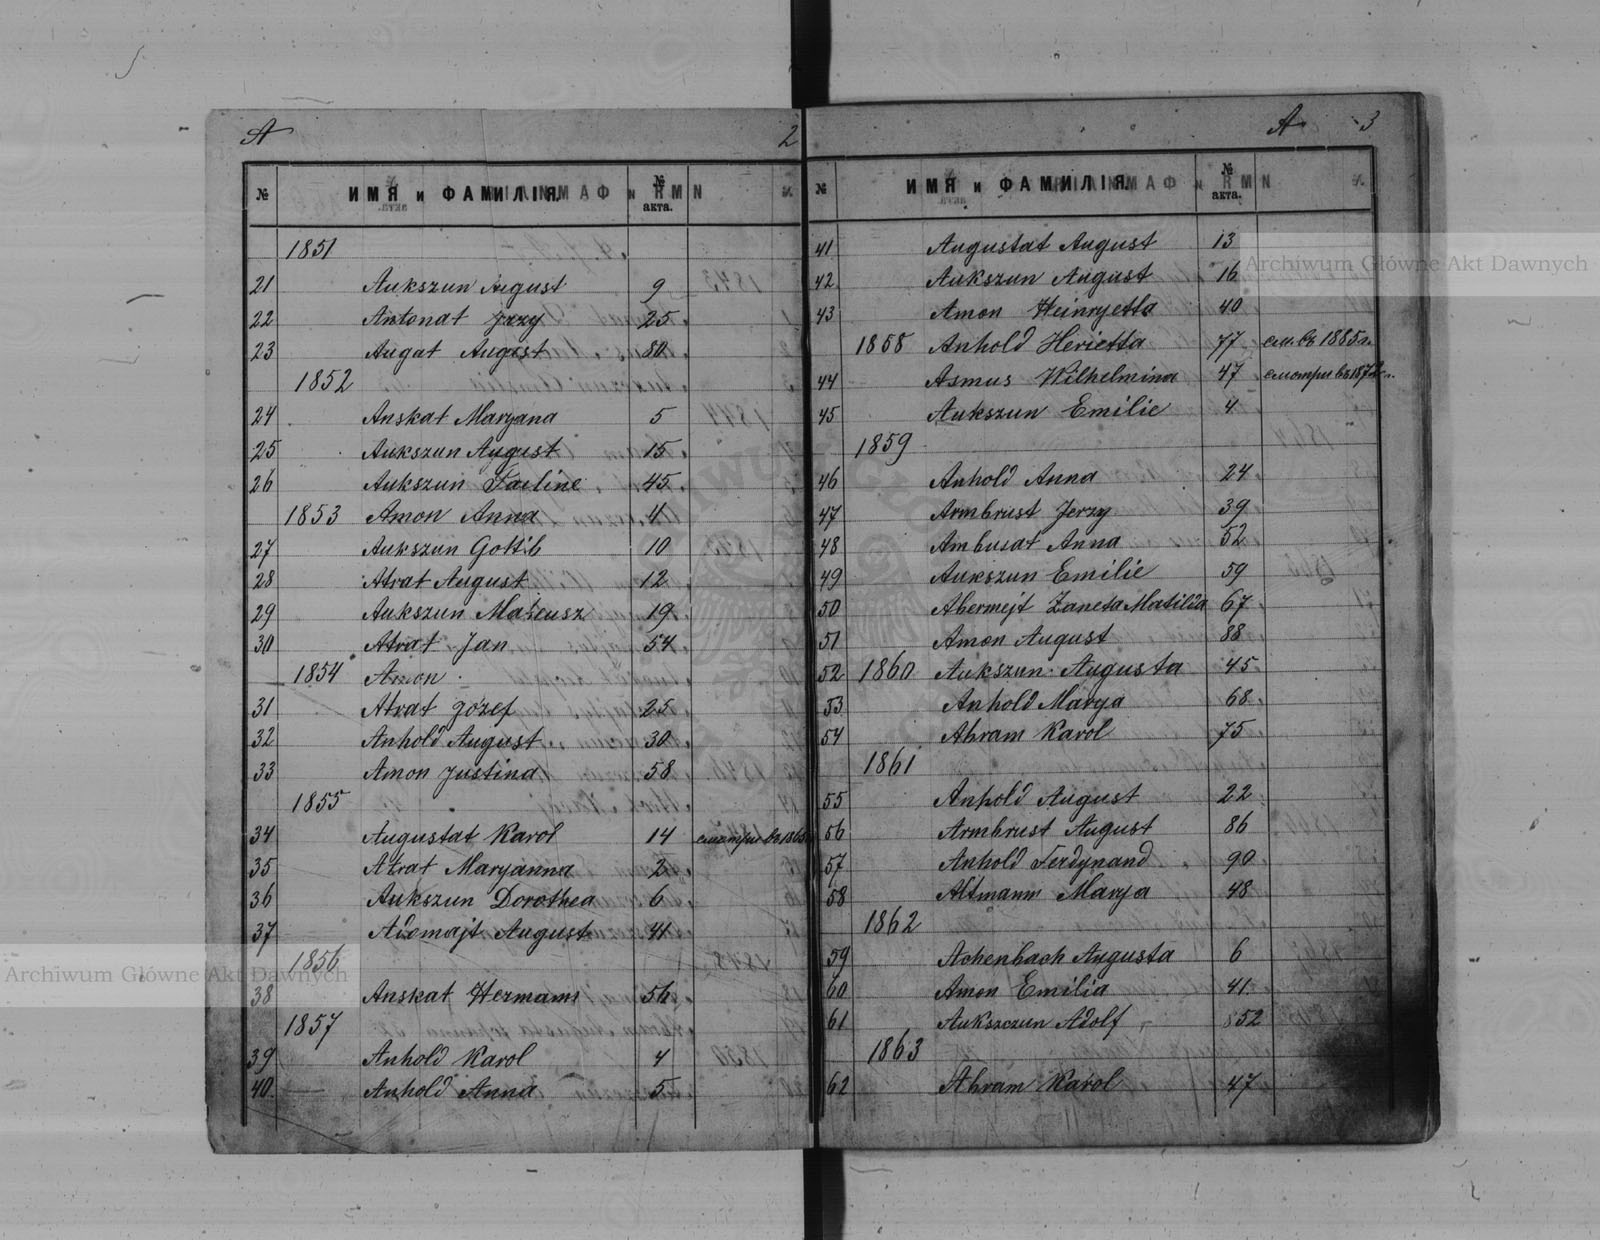 A 2
№ ИМЯ и ФАМИЛІЯ. № акта.
1851
21 Aukszun August 9
22 Antonat Jrzy 25
23 Augat August 80
1852
24 Anskat Maryana 5
25 Aukszun August 15
26 Aukszun Pauline 45
1853 Amon Anna 4
27 Aukszun Gottlib 10
28 Atrat August 12
29 Aukszun Mateusz 19
30 Atrat Jan 54
1854 Amon
31 Atrat Józef 25
32 Anhold August 30
33 Amon Justina 58
1855
34 Augustat Karol 14 смотри въ
35 Atrat Maryanna 2
36 Aukszun Dorothea 6
37 Adomajt August 41
1856
38 Anskat Hermann 56
1857
39 Anhold Karol 4
40 Anhold Anna 5
A 3
№ ИМЯ и ФАМИЛІЯ. № акта.
41 Augustat August 13
42 Aukszun August 16
43 Amon Heinryetta 40
1858 Anhold Herietta 77 см. въ 1885 г.
44 Asmus Wilhelmina 47 смотри въ 1872
45 Aukszun Emilie 4
1859
46 Anhold Anna 24
47 Armbrust Jerzy 39
48 Ambusat Anna 52
49 Aukszun Emilie 59
50 Abermejt Żaneta Matilda 67
51 Amon August 88
52 1860 Aukszun Augusta 45
53 Anhold Marya 68
54 Abram Karol 75
1861
55 Anhold August 22
56 Armbrust August 86
57 Anhold Ferdynand 90
58 Altmann Marya 48
1862
59 Achenbach Augusta 6
60 Amon Emilia 41
61 Aukszczun Adolf 852
1863
62 Abram Karol 47
Archiwum Główne Akt Dawnych
Archiwum Główne Akt Dawnych